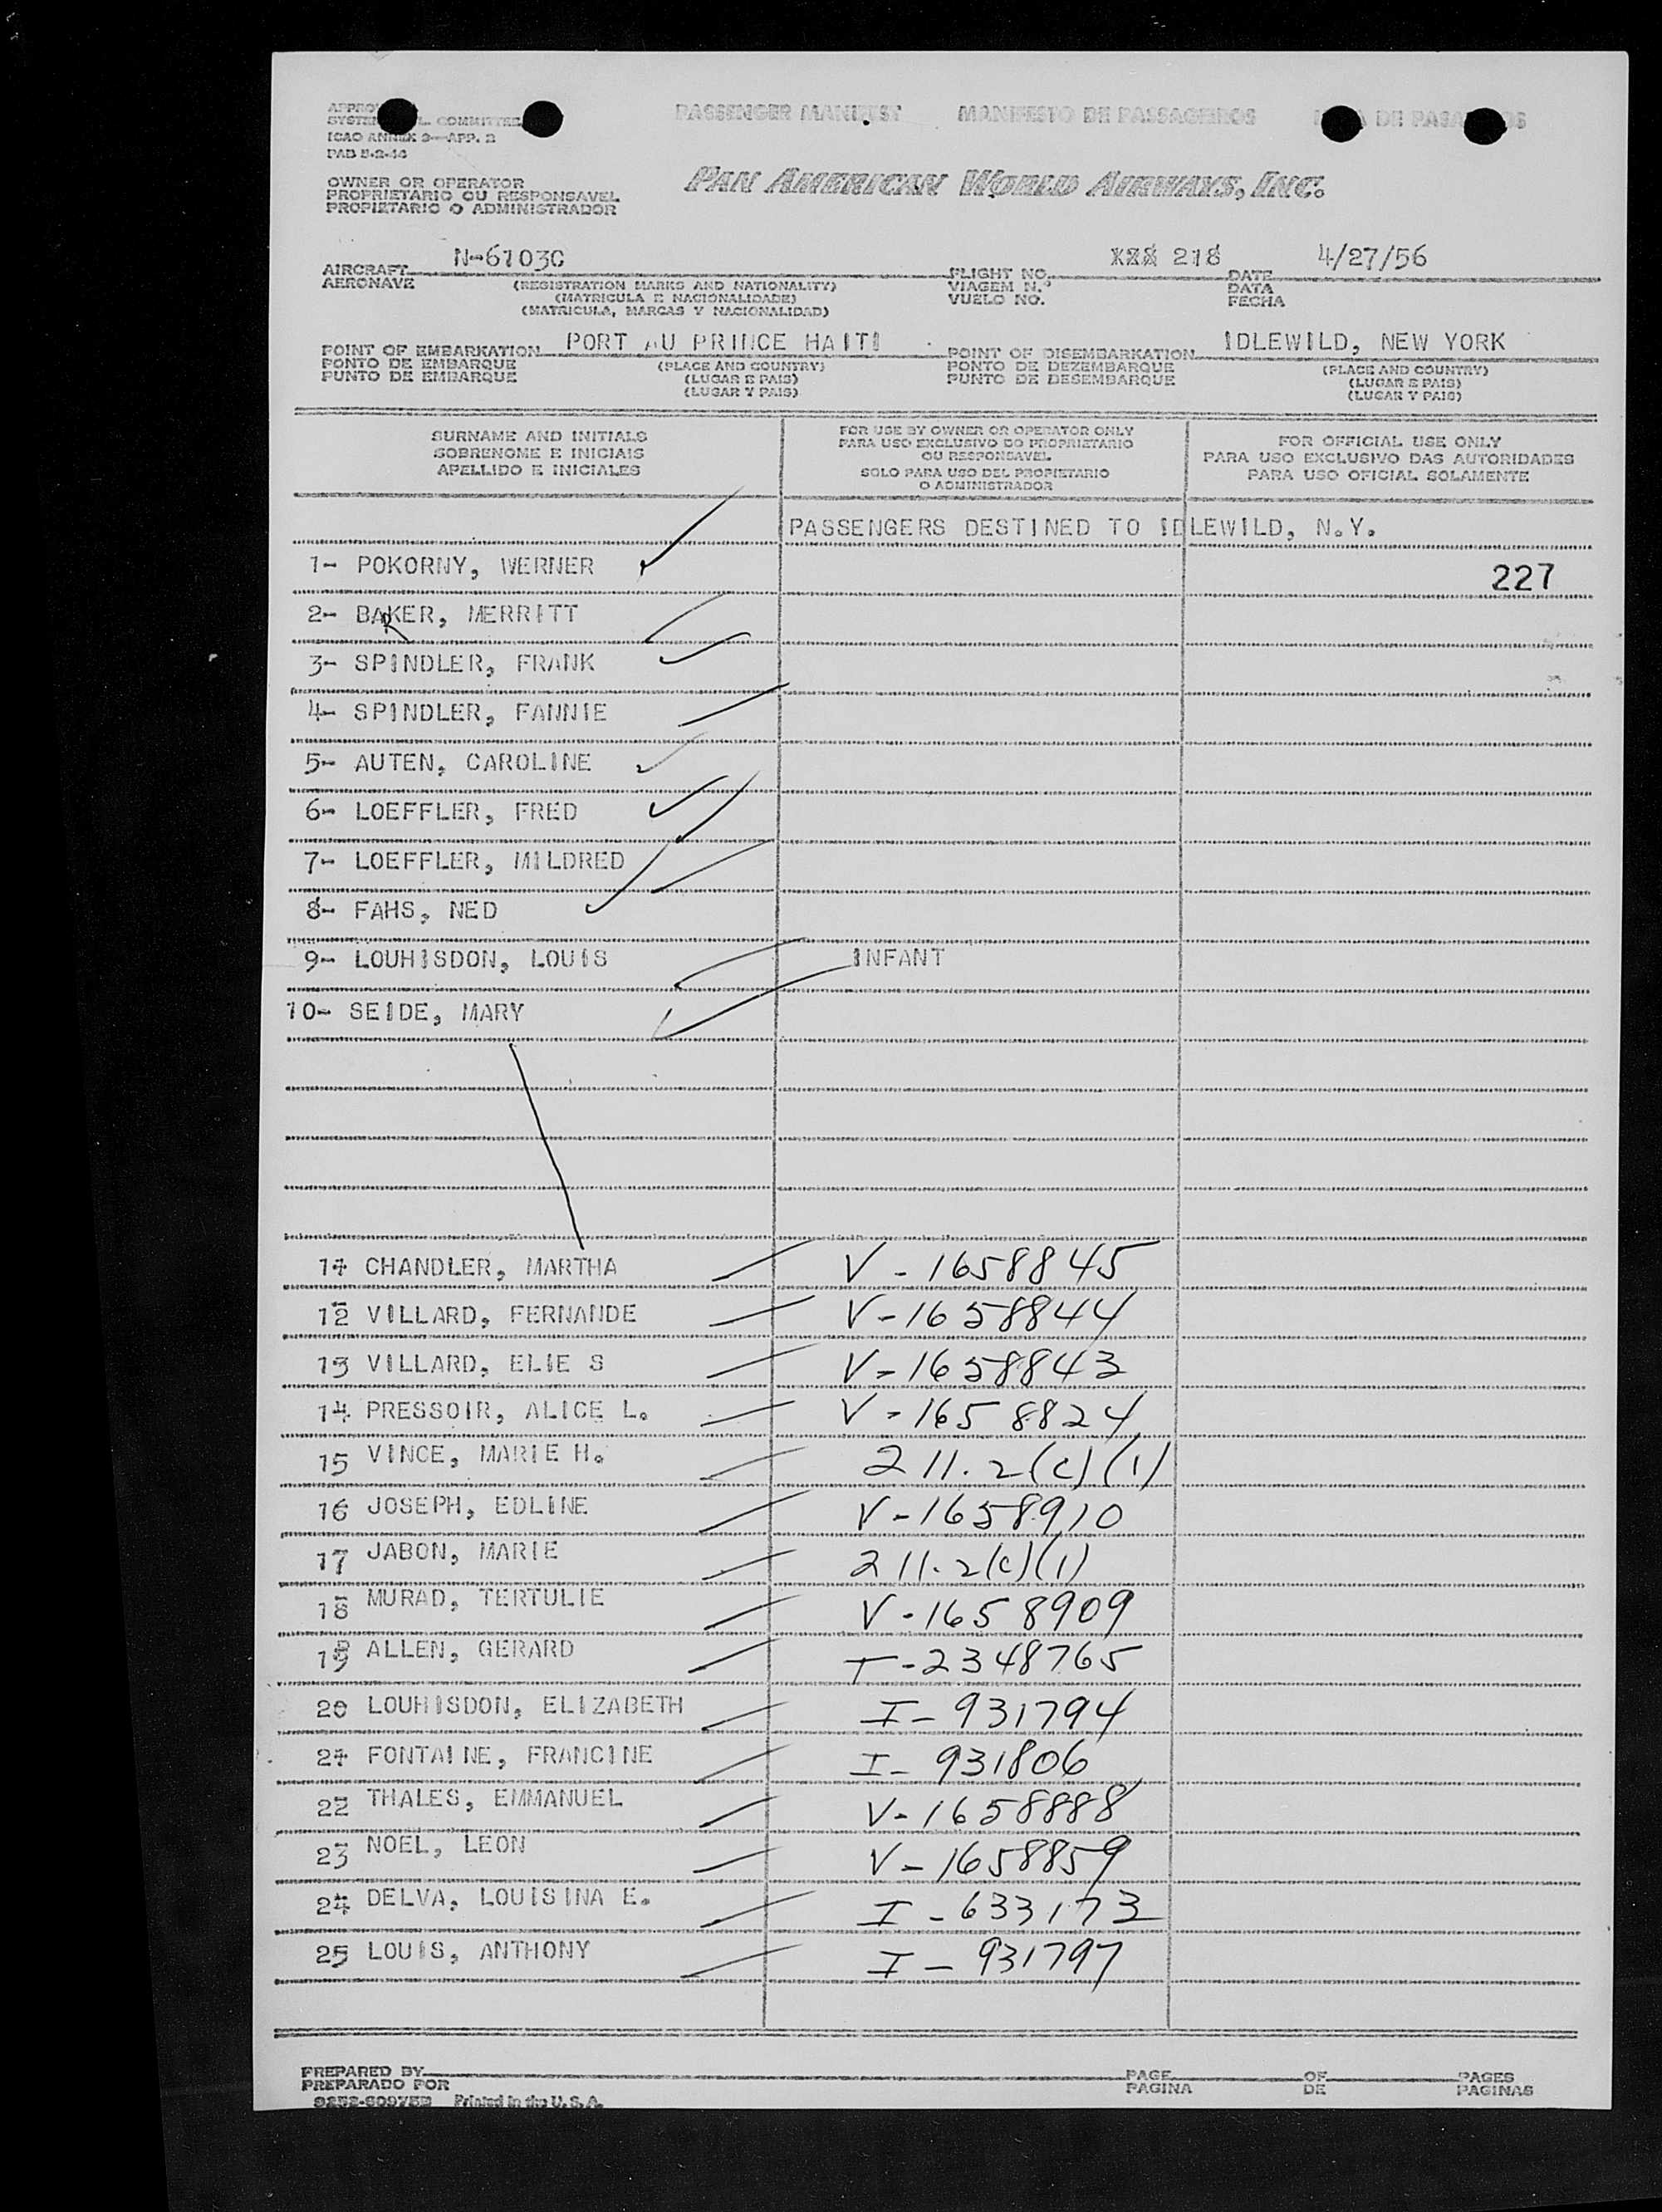 PASSENGER MANIFEST MANIFESTO DE PASSAGEIROS DE PASA OS
L. COMMITTEE
ICAO ANNEX 9—APP. 2
OWNER OR OPERATOR
PROPRIETARIO OU RESPONSAVEL
PROPIETARIO O ADMINISTRADOR
PAN AMERICAN WORLD AIRWAYS, INC.
AIRCRAFT N-6103C FLIGHT NO. XXX 218 DATE 4/27/56
AERONAVE (REGISTRATION MARKS AND NATIONALITY) VIAGEM N.º DATA
(MATRICULA E NACIONALIDADE) VUELO NO. FECHA
(MATRICULA, MARCAS Y NACIONALIDAD)
POINT OF EMBARKATION PORT AU PRINCE HAITI POINT OF DISEMBARKATION IDLEWILD, NEW YORK
PONTO DE EMBARQUE (PLACE AND COUNTRY) PONTO DE DEZEMBARQUE (PLACE AND COUNTRY)
PUNTO DE EMBARQUE (LUGAR E PAIS) PUNTO DE DESEMBARQUE (LUGAR E PAIS)
(LUGAR Y PAIS) (LUGAR Y PAIS)
SURNAME AND INITIALS
SOBRENOME E INICIAIS
APELLIDO E INICIALES
FOR USE BY OWNER OR OPERATOR ONLY
PARA USO EXCLUSIVO DO PROPRIETARIO
OU RESPONSAVEL
SOLO PARA USO DEL PROPIETARIO
O ADMINISTRADOR
FOR OFFICIAL USE ONLY
PARA USO EXCLUSIVO DAS AUTORIDADES
PARA USO OFICIAL SOLAMENTE
PASSENGERS DESTINED TO IDLEWILD, N.Y.
1- POKORNY, WERNER 227
2- BAKER, MERRITT
R
3- SPINDLER, FRANK
4- SPINDLER, FANNIE
5- AUTEN, CAROLINE
6- LOEFFLER, FRED
7- LOEFFLER, MILDRED
8- FAHS, NED
9- LOUHISDON, LOUIS INFANT
10- SEIDE, MARY
11 CHANDLER, MARTHA V - 1658845
12 VILLARD, FERNANDE V - 1658844
13 VILLARD, ELIE S V - 1658843
14 PRESSOIR, ALICE L. V - 1658824
15 VINCE, MARIE H. 211.2(c)(1)
16 JOSEPH, EDLINE V - 1658910
17 JABON, MARIE 211.2(c)(1)
18 MURAD, TERTULIE V - 1658909
19 ALLEN, GERARD I - 2348765
20 LOUHISDON, ELIZABETH I - 931794
21 FONTAINE, FRANCINE I - 931806
22 THALES, EMMANUEL V - 1658888
23 NOEL, LEON V - 1658859
24 DELVA, LOUISINA E. I - 633173
25 LOUIS, ANTHONY I - 931797
PREPARED BY PAGE OF PAGES
PREPARADO POR PAGINA DE PAGINAS
Printed in the U.S.A.